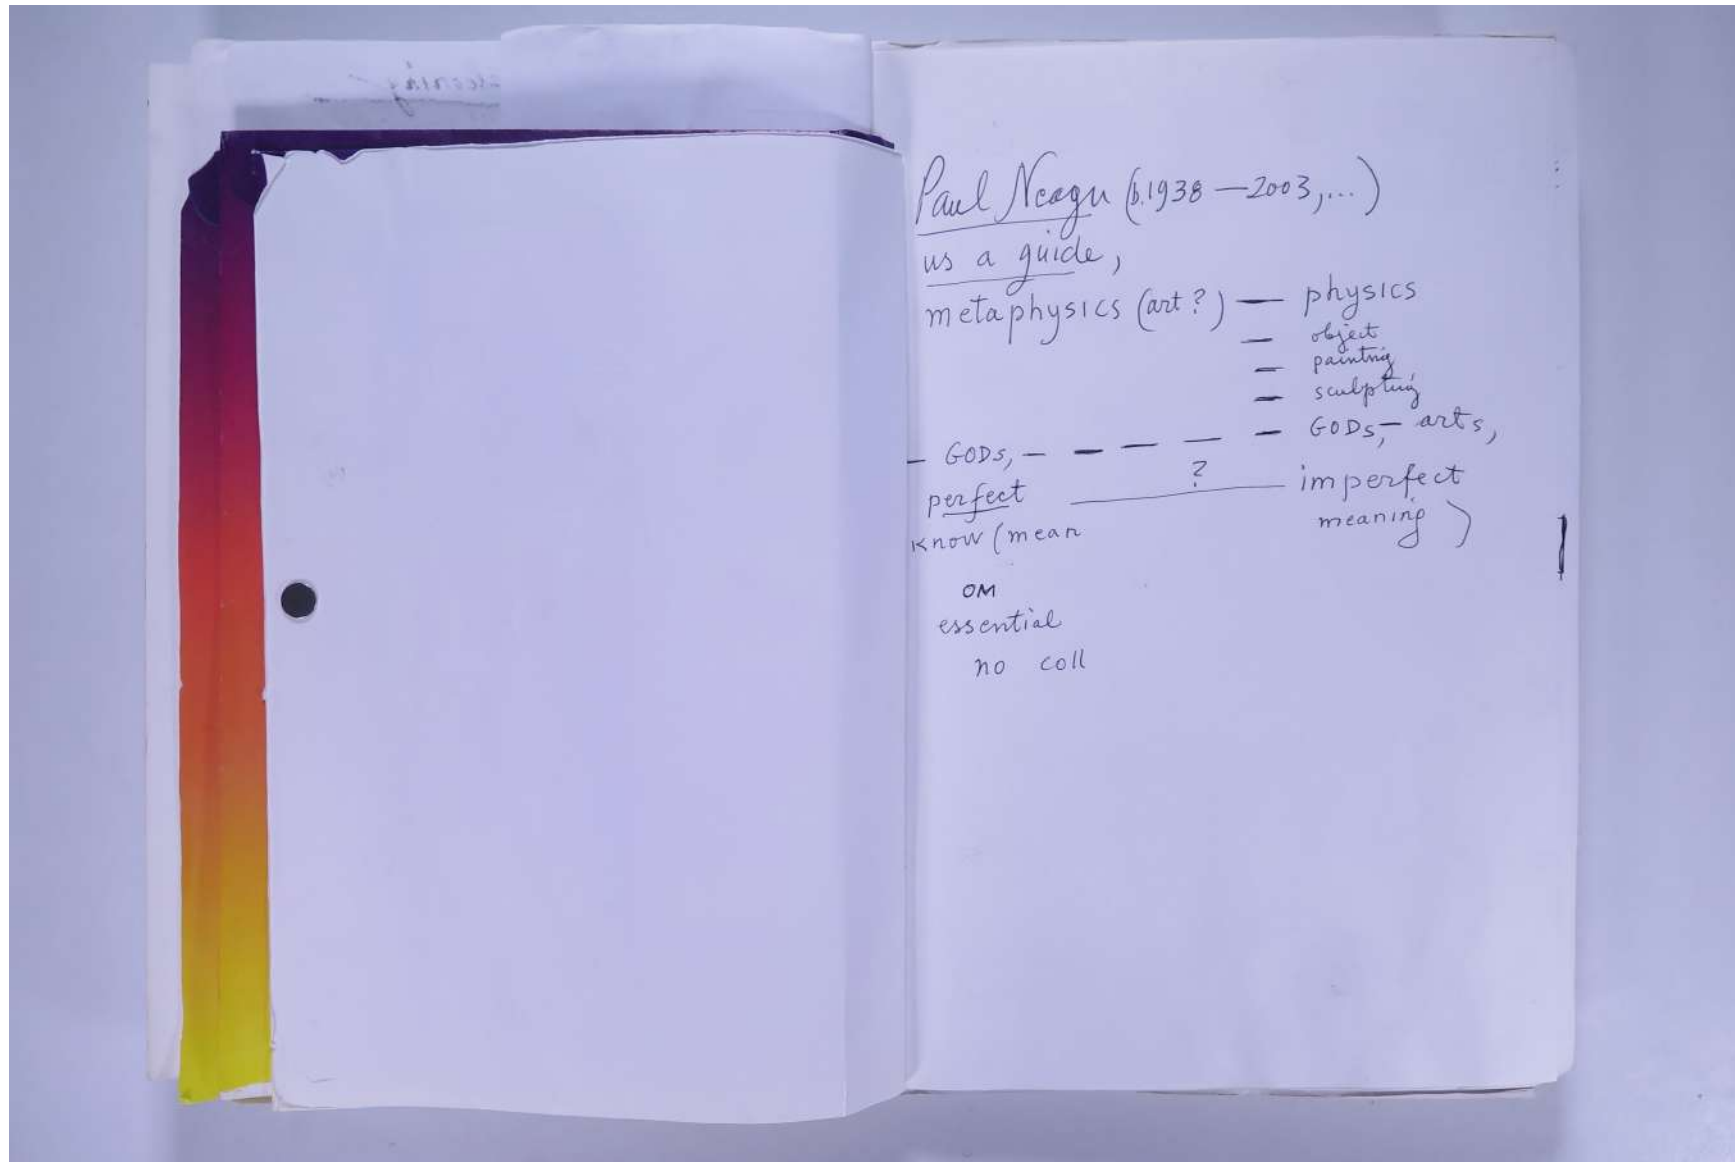 Paul Neagu (b.1938 — 2003,...)
us a guide,
metaphysics (art?) — physics
— object
— painting
— sculpting
— GODs, — — — — — GODs, — arts,
perfect ——— ? ——— imperfect
know (mean meaning)
OM
essential
no coll